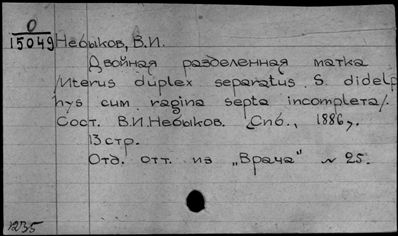 О
15049 Небыков, В.И.
Двойная разделенная матка
/Uterus duplex separatus S. didelp
hys cum vagina septa incompleta/.
Сост. В.И.Небыков. Спб., 1886г.
13 стр.
Отд. отт. из „Врача" № 25.
1235